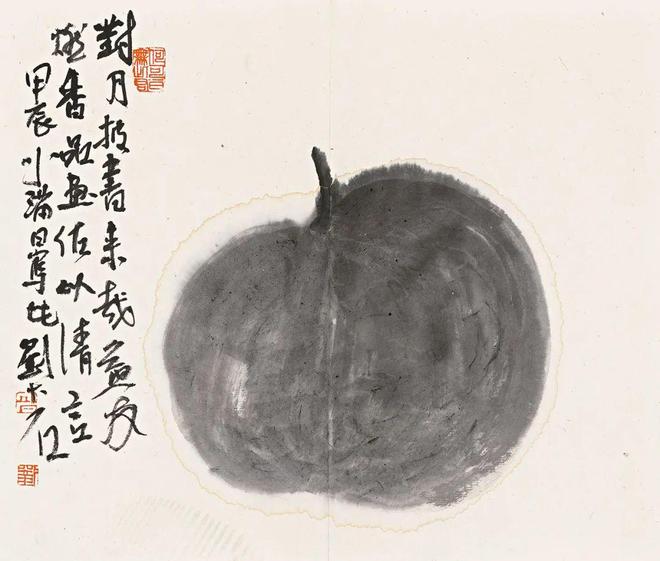 對月披書來哉益友
香品畫佐以清言
甲辰小滿日寫此劉